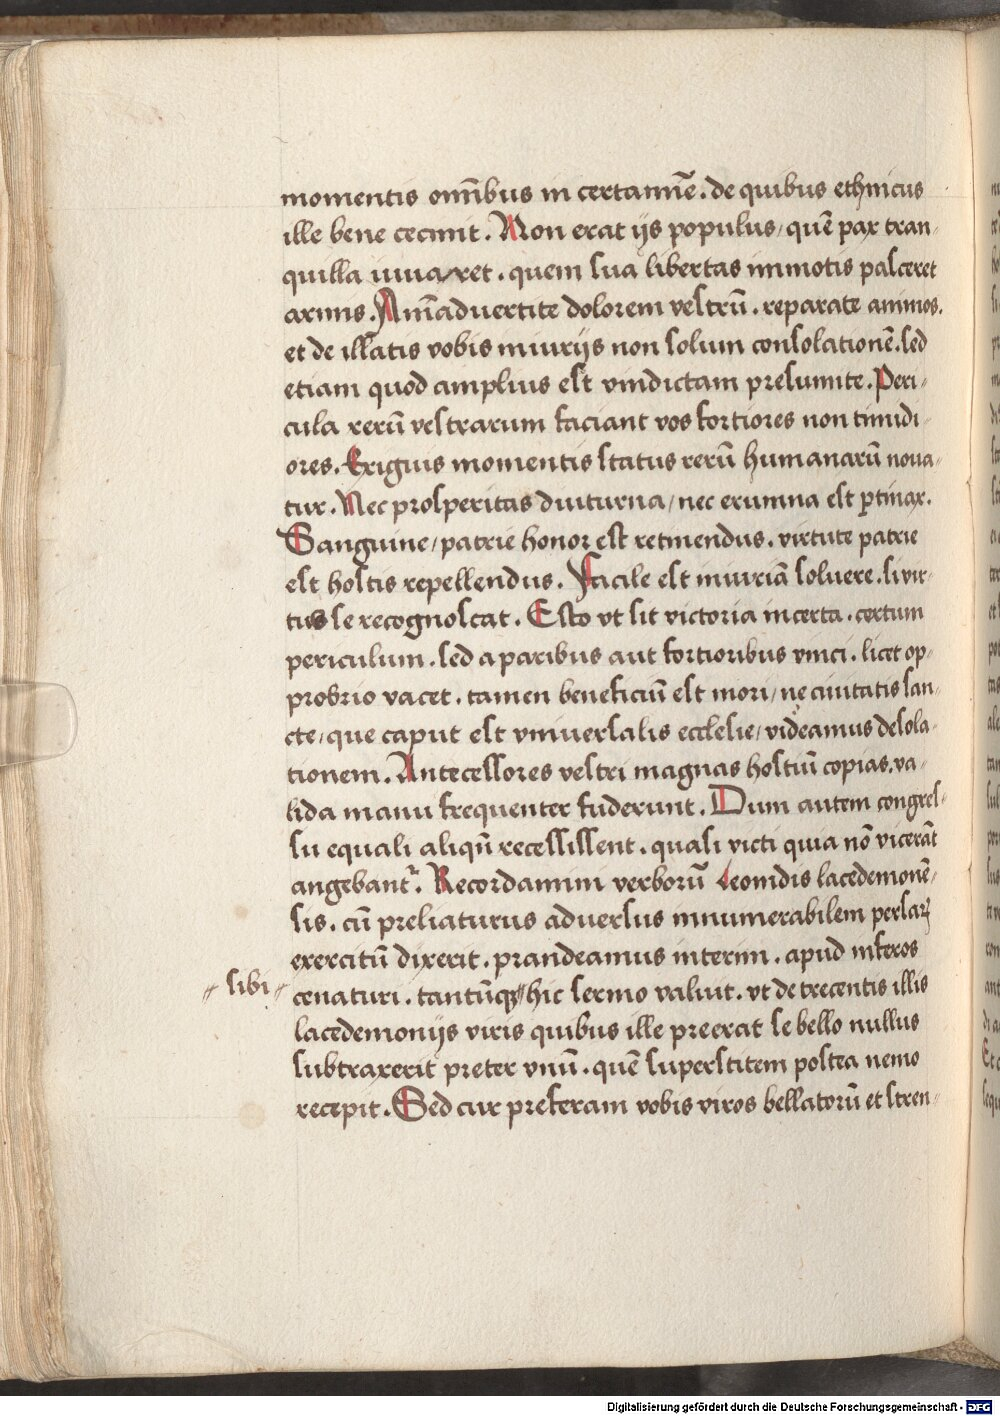 momentis om̄ibus in certamīe . de quibus ethnicus
ille bene cecinit . Non erat ijs populus / quē pax tran⸗
quilla iuuaret . quem sua libertas inmotis pasceret
armis . Anīaduertite dolorem vestrū . reparate animos .
et de illatis vobis iniurijs non solum consolationē . sed
etiam quod amplius est vindictam presumite . Peri⸗
cula rerū vestrarum faciant vos fortiores non timidi⸗
ores . Exiguis momentis status rerū humanarū noua⸗
tur . Nec prosperitas diuturna / nec erumna est ꝑtinax .
Sanguine / patrie honor est retinendus . virtute patrie
est hostis repellendus . Facile est iniuriā soluere . si vir⸗
tus se recognoscat . Esto vt sit victoria incerta . certum
periculum . sed a paribus aut fortioribus vinci . licet op⸗
probrio vacet . tamen beneficiū est mori / ne ciuitatis san⸗
cte / que caput est vniuersalis ecclesie / videamus desola⸗
tionem . Antecessores vestri magnas hostiū copias . va⸗
lida manu frequenter fuderunt . Dum autem congres⸗
su equali aliqn̄ recessissent . quasi victi quia nō vicerāt
angebant᷑ . Recordamini verborū Leonidis lacedemonē⸗
sis . cū preliaturus aduersus innumerabilem persaꝝ
exercitū dixerit . prandeamus interim . apud inferos
⸗ sibi ⸗ cenaturi . tantūqꝫ hic sermo valuit . vt de trecentis illis
lacedemonijs viris quibus ille preerat se bello nullus
subtraxerit preter vnū . quē superstitem postea nemo
recepit . Sed cur preferam vobis viros bellatorū et stren⸗
Digitalisierung gefördert durch die Deutsche Forschungsgemeinschaft - DFG